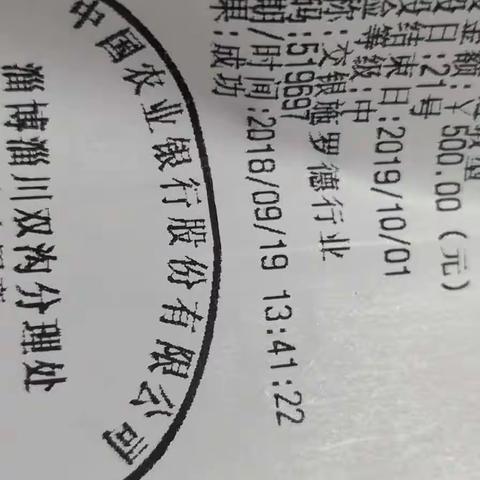 金额:￥500.00(元)
日:21号
结束日:2019/10/01
等级:中
称:交银施罗德行业
码:519697
期/时间:2018/09/19 13:41:22
果:成功
中国农业银行股份有限公司
淄博淄川双沟分理处